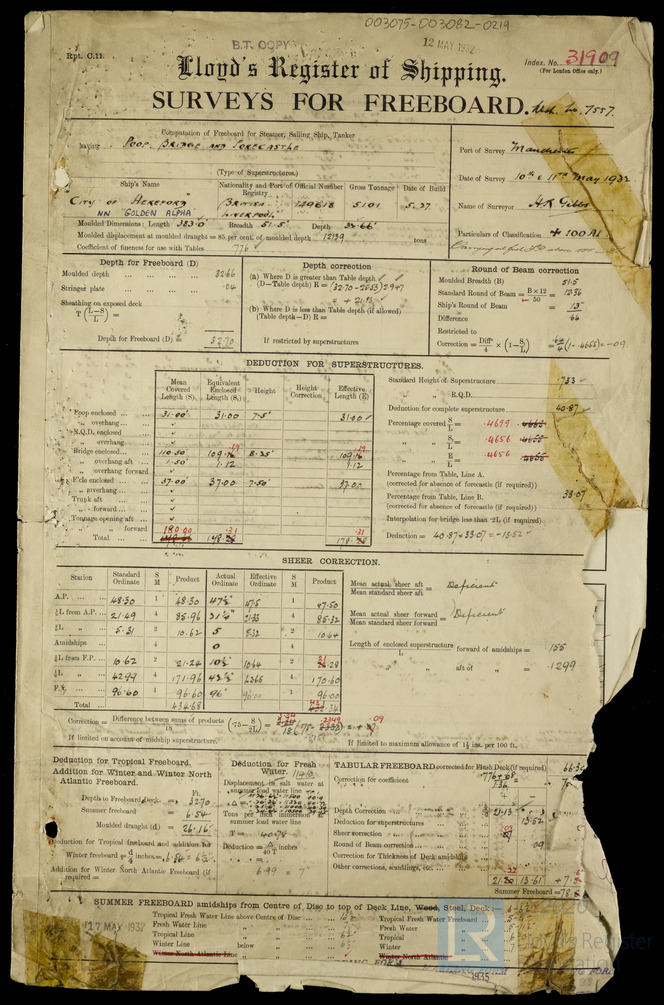 003075-003082-0219
B.T. COPY
12 MAY 1932
Rpt. C.11.
Index. No. 31909
(For London Office only.)
Lloyd's Register of Shipping.
SURVEYS FOR FREEBOARD.
7557.
Computation of Freeboard for Steamer, Sailing Ship, Tanker
having Poop, Bridge and Forecastle
(Type of Superstructures.)
Port of Survey Manchester
Date of Survey 10th & 11th May 1932
Name of Surveyor
Particulars of Classification + 100 A1
Ship's Name
Nationality and Port of Registry
Official Number
Gross Tonnage
Date of Build
"City of Hereford"
NN "GOLDEN ALPHA"
British
Liverpool
149618
5101
5.27
Moulded Dimensions: Length 383.0 Breadth 51.5 Depth 32.66
Moulded displacement at moulded draught = 85 per cent. of moulded depth 12139 tons
Coefficient of fineness for use with Tables .776
Depth for Freeboard (D)
Moulded depth 32.66
Stringer plate .04
Sheathing on exposed deck
T (L-S/L) =
Depth for Freeboard (D) = 32.70
Depth correction
(a) Where D is greater than Table depth
(D-Table depth) R = (32.70-25.53) 2.947
= + 21.13
(b) Where D is less than Table depth (if allowed)
(Table depth-D) R =
If restricted by superstructures
Round of Beam correction
Moulded Breadth (B) 51.5
Standard Round of Beam = B×12/50 = 12.36
Ship's Round of Beam = 13
Difference .64
Restricted to
Correction = Diff/4 × (1-S/L) = .64/4 (1-.4656) = -.09
DEDUCTION FOR SUPERSTRUCTURES.
Mean Covered Length (S)
Equivalent Enclosed Length (S₁)
Height
Height Correction
Effective Length (E)
Poop enclosed 31.00 31.00 7.5' 31.00
" overhang
R.Q.D. enclosed
" overhang
Bridge enclosed 110.50 109.19 8.25' 109.19
" overhang aft 1.50 1.12 1.12
" overhang forward
F'cle enclosed 37.00 37.00 7.50' 37.00
" overhang
Trunk aft
" forward
Tonnage opening aft
" forward
Total 180.00 178.31 178.31
Standard Height of Superstructure 7.33
" " R.Q.D.
Deduction for complete superstructure 40.87
Percentage covered S/L = .4699
" S₁/L = .4656
" E/L = .4656
Percentage from Table, Line A.
(corrected for absence of forecastle (if required))
Percentage from Table, Line B. 33.07
(corrected for absence of forecastle (if required))
Interpolation for bridge less than ·2L (if required)
Deduction = 40.87 × 33.07 = -13.52
SHEER CORRECTION.
Station
Standard Ordinate
S M
Product
Actual Ordinate
Effective Ordinate
S M
Product
A.P. 48.30 1 48.30 47½ 47.5 1 47.50
⅙L from A.P. 21.49 4 85.96 21½ 21.33 4 85.32
⅓L " 5.31 2 10.62 5 5.32 2 10.64
Amidships 4 0 4
⅓L from F.P. 10.62 2 21.24 10½ 10.64 2 21.28
⅙L " 42.99 4 171.96 42½ 42.65 4 170.60
F.P. 96.60 1 96.60 96" 96.00 1 96.00
Total 434.68
Mean actual sheer aft
Mean standard sheer aft = Deficient
Mean actual sheer forward
Mean standard sheer forward = Deficient
Length of enclosed superstructure/L forward of amidships = .155
" " aft of " = .1299
Correction = Difference between sums of products/18 (·75-S/2L) =
If limited on account of midship superstructure.
If limited to maximum allowance of 1½ ins. per 100 ft.
Deduction for Tropical Freeboard.
Addition for Winter and Winter North Atlantic Freeboard.
Ft.
Depth to Freeboard Deck = 32.70
Summer freeboard = 6.54
Moulded draught (d) = 26.16
Deduction for Tropical freeboard and addition for
Winter freeboard = d/4 inches =
Addition for Winter North Atlantic Freeboard (if required) =
Deduction for Fresh Water.
Displacement in salt water at summer load water line
Δ =
Tons per inch immersion at summer load water line
T = 40.78
Deduction = Δ/40T inches
6.99 = 7"
TABULAR FREEBOARD corrected for Flush Deck (if required)
Correction for coefficient .776+.68/1.36
Depth Correction 21.13
Deduction for superstructures 13.52
Sheer correction
Round of Beam correction .09
Correction for Thickness of Deck amidships
Other corrections, scantlings, etc.
13.61
Summer Freeboard =
SUMMER FREEBOARD amidships from Centre of Disc to top of Deck Line, Wood, Steel, Deck:
Tropical Fresh Water Line above Centre of Disc
Fresh Water Line "
Tropical Line "
Winter Line below "
Winter North Atlantic Line "
Tropical Fresh Water Freeboard
Fresh Water "
Tropical "
Winter "
Winter North Atlantic "
17 MAY 1932
1935
LR
Lloyd's Register
Foundation